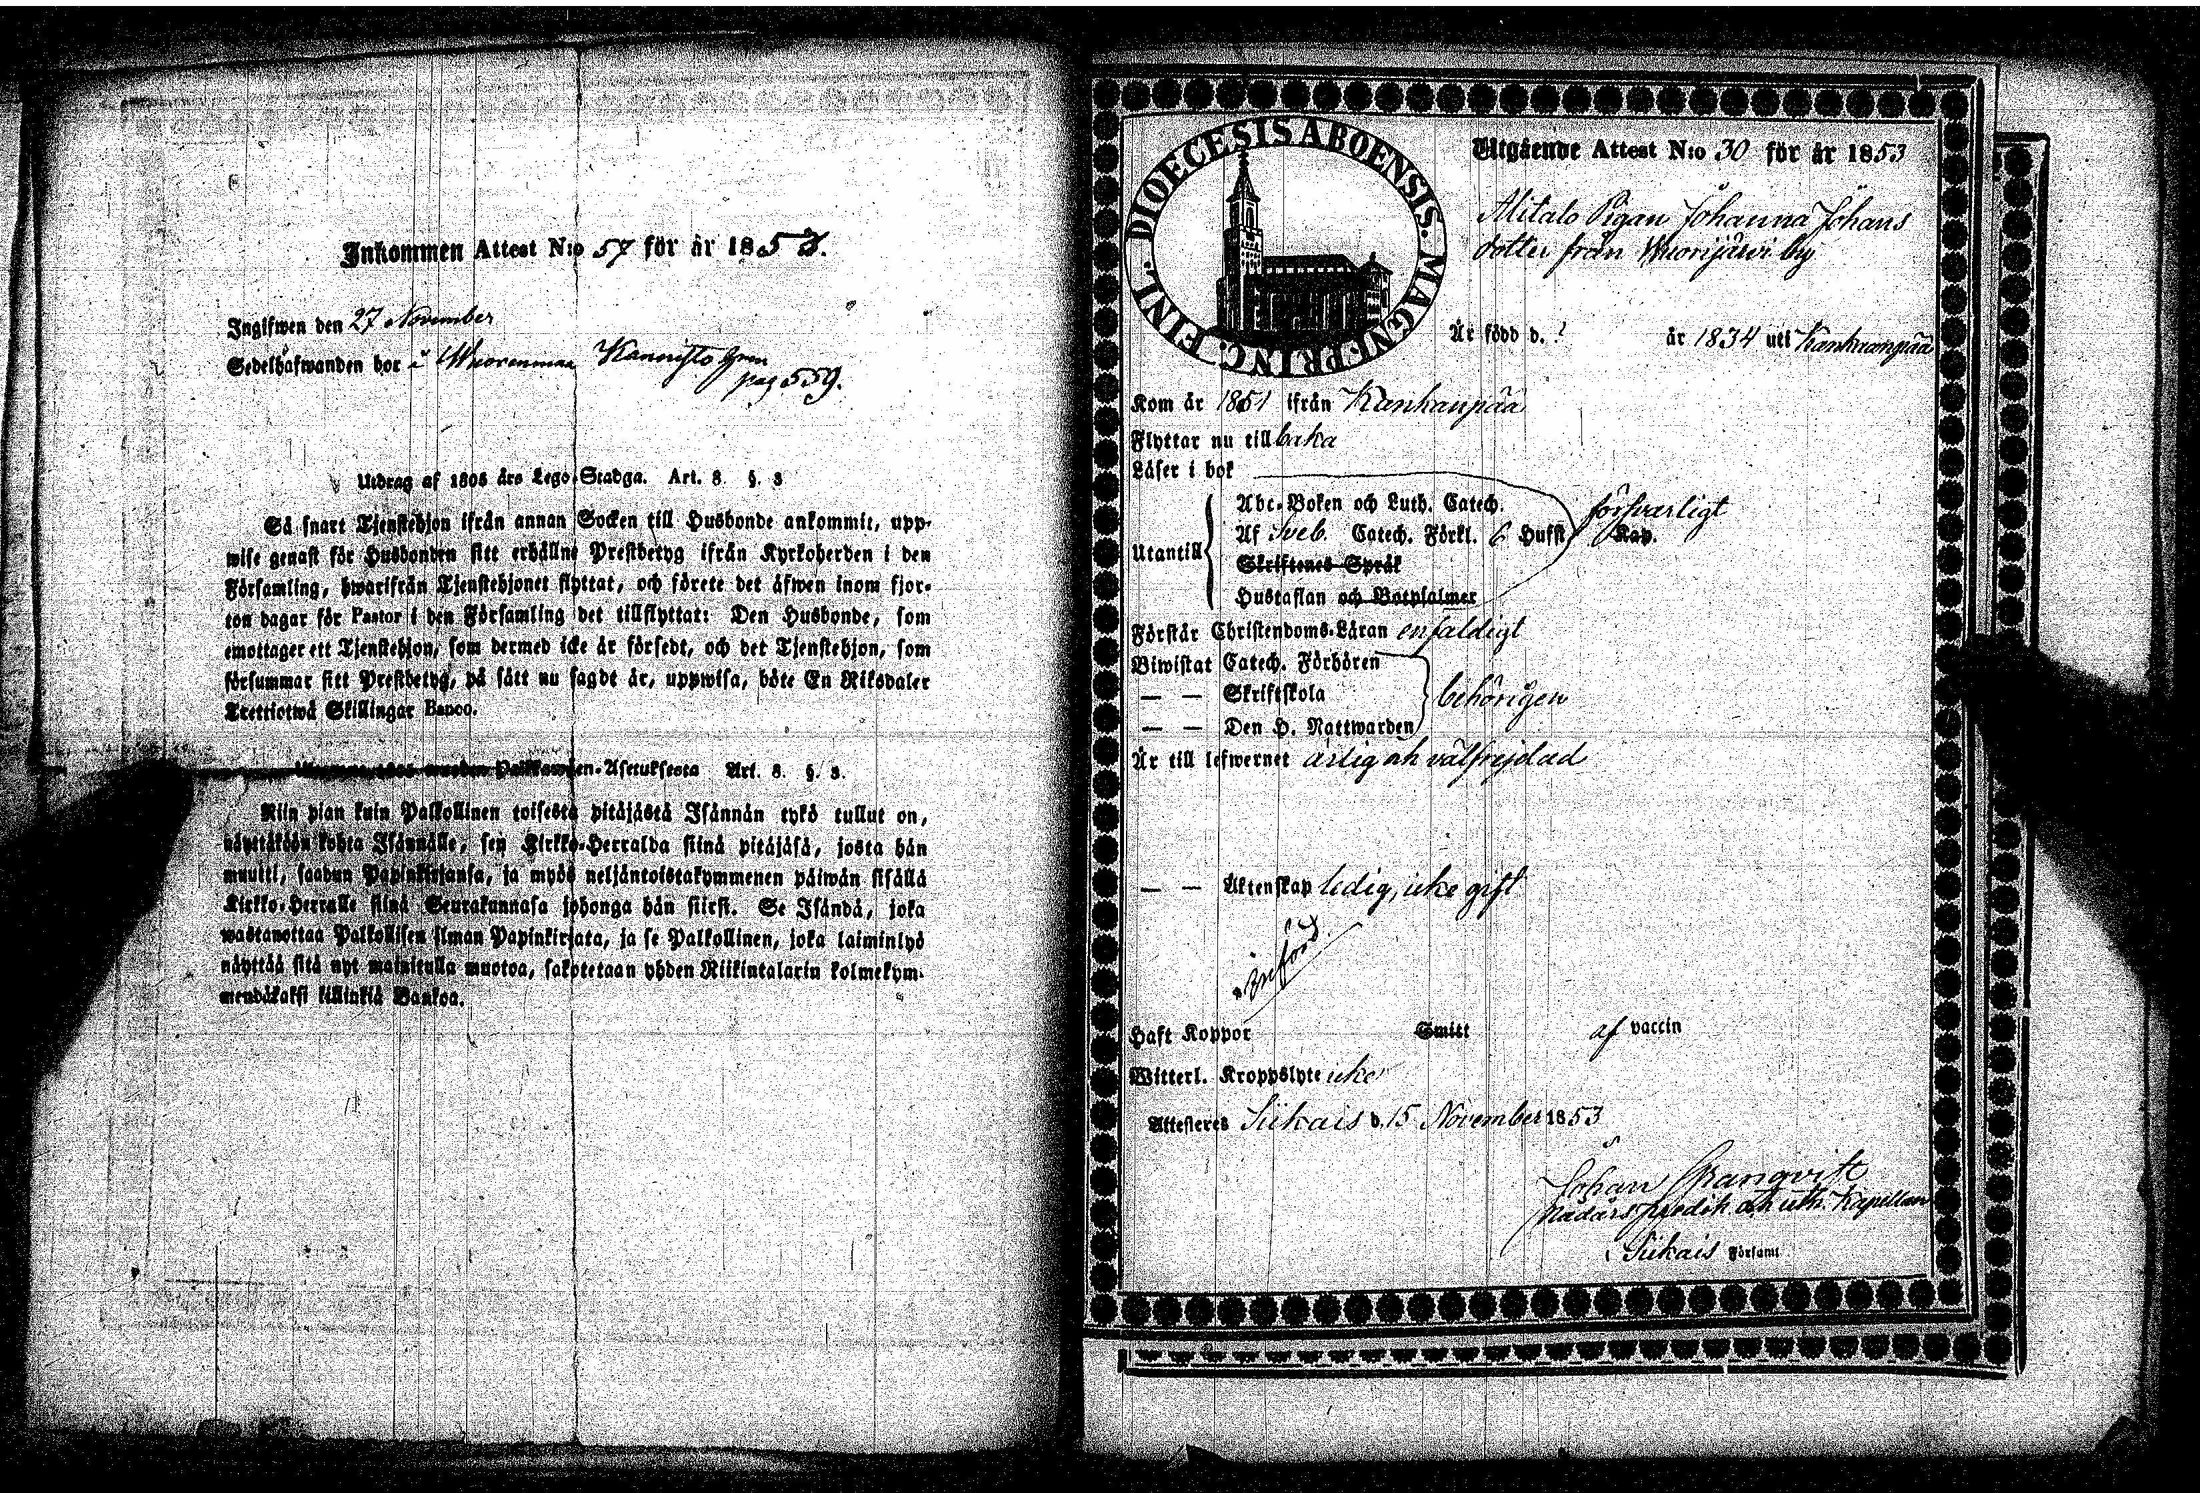 Inkommen Attest N:o 57 för år 1853.
Ingifwen den 27 November
Sedelhafwanden bor i Wuorenmaa Kannisto
pag 559.
Utdrag af 1805 års Lego-Stadga. Art. 8 §. 3
Så snart Tjenstehjon ifrån annan Socken till Husbonde ankommit, upp-
wise genast för Husbonden sitt erhållne Prestbetyg ifrån Kyrkoherden i den
Församling, hwarifrån Tjenstehjonet flyttat, och förete det äfwen inom fjor-
ton dagar för Pastor i den Församling det tillflyttat: Den Husbonde, som
emottager ett Tjenstehjon, som dermed icke är försedt, och det Tjenstehjon, som
försummar sitt Prestbetyg, på sätt nu sagdt är, uppwisa, böte En Riksdaler
Trettiotwå Skillingar Banco.
Palkowäen-Asetuksesta Art. 8. §. 3.
Niin pian kuin Palkollinen toisesta pitäjästä Isännän tykö tullut on,
näyttäköön kohta Isännälle, sen Kirkko-Herralda siinä pitäjäsä, josta hän
muutti, saadun Papinkirjansa, ja myös neljäntoistakymmenen päiwän sisällä
Kirkko-Herralle siinä Seurakunnasa johonga hän siirsi. Se Isändä, joka
wastanottaa Palkollisen ilman Papinkirjata, ja se Palkollinen, joka laiminlyö
näyttää sitä nyt mainitulla muotoa, sakotetaan yhden Riikintalarin kolmekym-
mendäkaksi killinkiä Bankoa.
DIOECESIS ABOENSIS. MAGNI PRINC. FINL.
Utgående Attest N:o 30 för år 1853
Alitalo Pigan Johanna Johans
dotter från Wuorijärvi by
Är född d. ? år 1834 uti Kankaanpää
Kom år 1851 ifrån Kankaanpää
Flyttar nu till baka
Läser i bok
Abc-Boken och Luth. Catech. försvarligt
Utantill Af Sveb. Catech. Förkl. 6 Hufst Kap.
Skriftenes Språk
Hustaflan och Botpsalmer
Förstår Christendoms-Läran enfaldigt
Biwistat Catech. Förhören
— — Skriftskola behörigen
— — Den H. Nattwarden
Är till lefwernet ärlig och välfrejdad
— — Äktenskap ledig, icke gift
Införd
Haft Koppor Smitt af vaccin
Witterl. Kroppslyte icke
Attesteres Siikais d. 15 November 1853
Johan Granqvist
Nådårs predik och uth. Kapellan
Siikais Församl